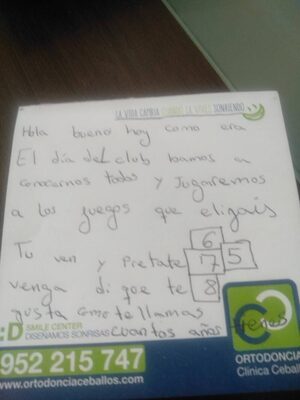 LA VIDA CAMBIA CUANDO LA VIVES SONRIENDO
Hola bueno hoy como era
El día del club bamos a
conocernos todos y Jugaremos
a los juegos que elijais
6
Tu ven y 7 5
venga di que te 8
gusta como te llamas
cuantos años tienes
:D SMILE CENTER
DISEÑAMOS SONRISAS
952 215 747
www.ortodonciaceballos.com
ORTODONCIA
Clínica Ceball